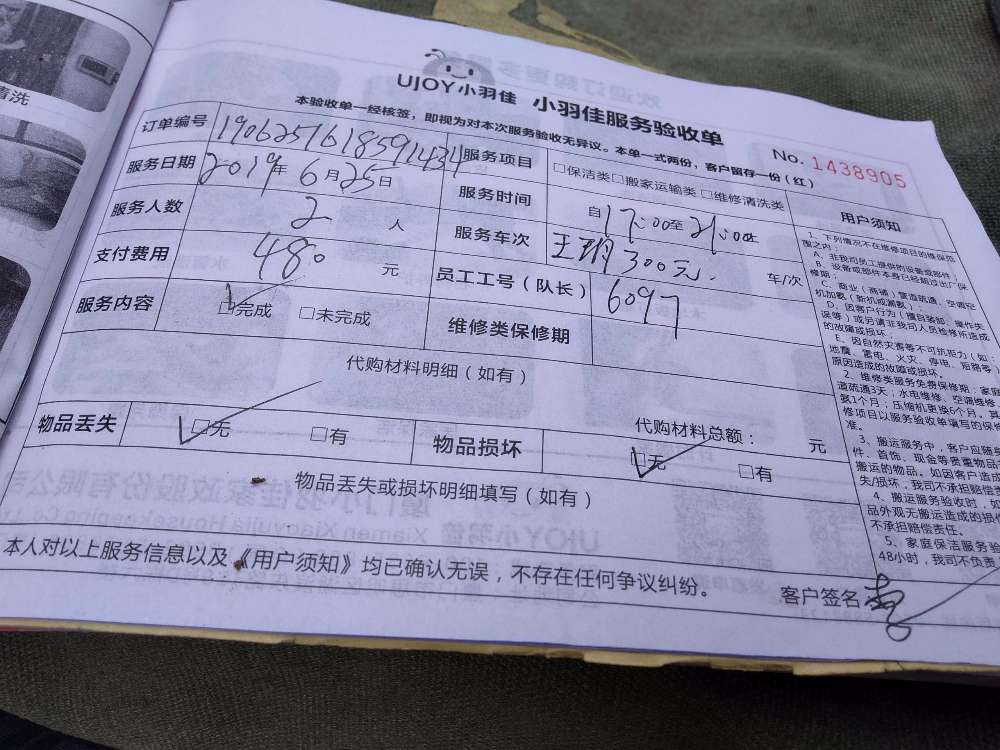 清洗
UJOY小羽佳 小羽佳服务验收单
本验收单一经核签，即视为对本次服务验收无异议。本单一式两份，客户留存一份（红）
No. 1438905
订单编号 190625161859143 服务项目 □保洁类□搬家运输类□维修清洗类 用户须知
服务日期 2019年6月25日 服务时间 自17:00至21:00止
服务人数 2 人 服务车次 300元. 车/次
支付费用 480 元 员工工号（队长） 6097
服务内容 □完成 □未完成 维修类保修期
代购材料明细（如有）
代购材料总额： 元
物品丢失 □无 □有 物品损坏 □无 □有
物品丢失或损坏明细填写（如有）
本人对以上服务信息以及《用户须知》均已确认无误，不存在任何争议纠纷。 客户签名
1、下列情况不在维修项目的维保范
围之内：
A、非我司员工提供的设备或部件；
B、设备或部件本身已经超过出厂保
修期；
C、商业（商铺）管道疏通、空调空
机加氟（新机或漏氟）；
D、因客户行为（擅自装卸、操作失
误等）或另请非我司人员检修所造成
的故障或损坏；
E、因自然灾害等不可抗拒力（如：
地震、雷电、火灾、停电、短路等）
原因造成的故障或损坏。
2、维修类服务免费保修期：家庭
道疏通3天；水电维修、空调维修
氨1个月；压缩机更换6个月。其
修项目以服务验收单填写的保修
准。
3、搬运服务中，客户应随身
件、首饰、现金等贵重物品
搬运的物品。如因客户造成
失/损坏，我司不承担赔偿责
4、搬运服务验收时，如
品外观无搬运造成的损伤
不承担赔偿责任。
5、家庭保洁服务验
48小时，我司不负责